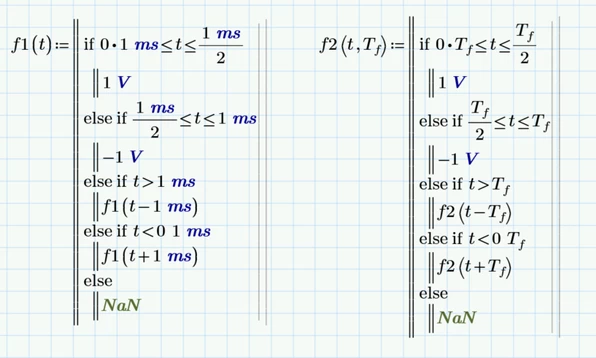 f1(t):=
if 0·1 ms≤t≤1 ms/2
1 V
else if 1 ms/2≤t≤1 ms
−1 V
else if t>1 ms
f1(t−1 ms)
else if t<0 1 ms
f1(t+1 ms)
else
NaN
f2(t,T_f):=
if 0·T_f≤t≤T_f/2
1 V
else if T_f/2≤t≤T_f
−1 V
else if t>T_f
f2(t−T_f)
else if t<0 T_f
f2(t+T_f)
else
NaN